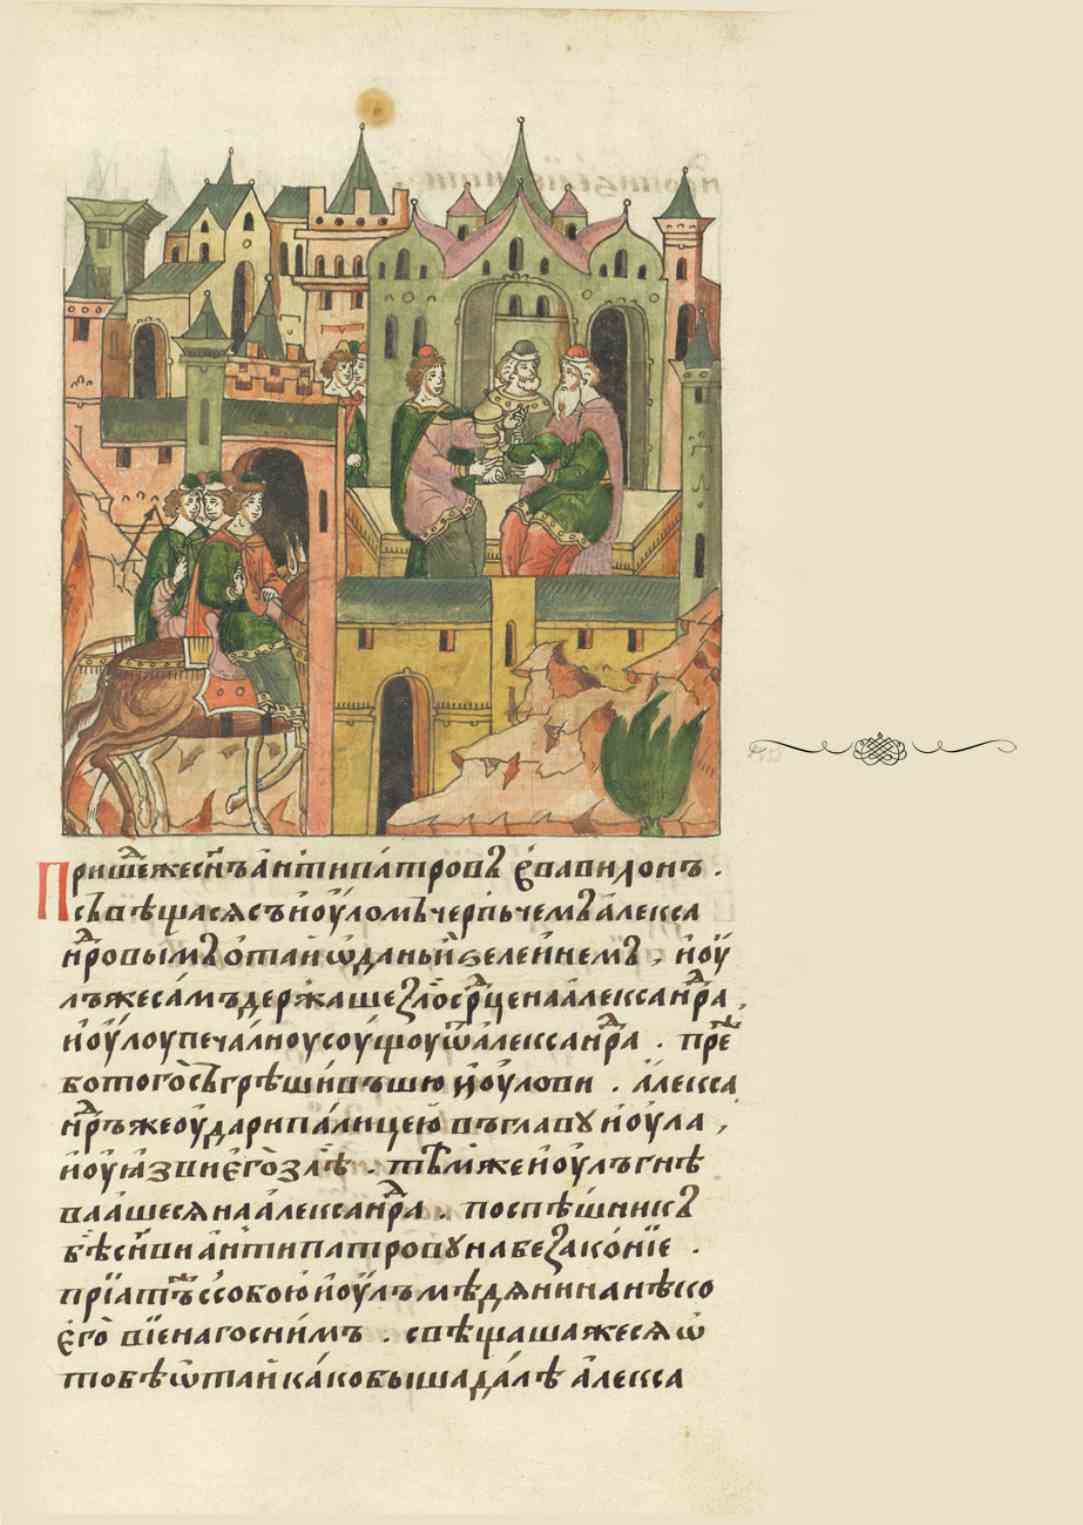 Прише́джесн҃ъа́нтипа́тровъ в҄вавилонъ .
съвѣщасѧсъио́у́ломъчерпьчемъа́лекса
н҃дровымъо҆тайѡ҆даньи҆зелейнемъ , ио́у
лъжеса́мъдержашезло́срⷣценаа́лексанⷣра ,
ио́у́лоупеча́лноусоу́щоуѿа́лексанⷣра . пре́
ботого̀съгрѣши́въшюио́улови . а́лекса
нⷣръжеоу҆дарипа́лицеювъглавꙋ̀ио́ула ,
ио́уꙗ҆звиє҆го̀злѣ̀ . тѣ́мжеио́улъгнѣ
ваа́шесѧнаа́лексанⷣра . поспѣ́шникъ
бѣ́сн҃виа́нтипатровꙋнабезако́нїе .
прїа́тъссобоюио́улъмѣдѧнинанѣко
є҆го̀ вїенагосни́мъ . свѣщашажесѧѡ҆
тобѣѡ҆тайка́кобышада́лѣ а́лекса